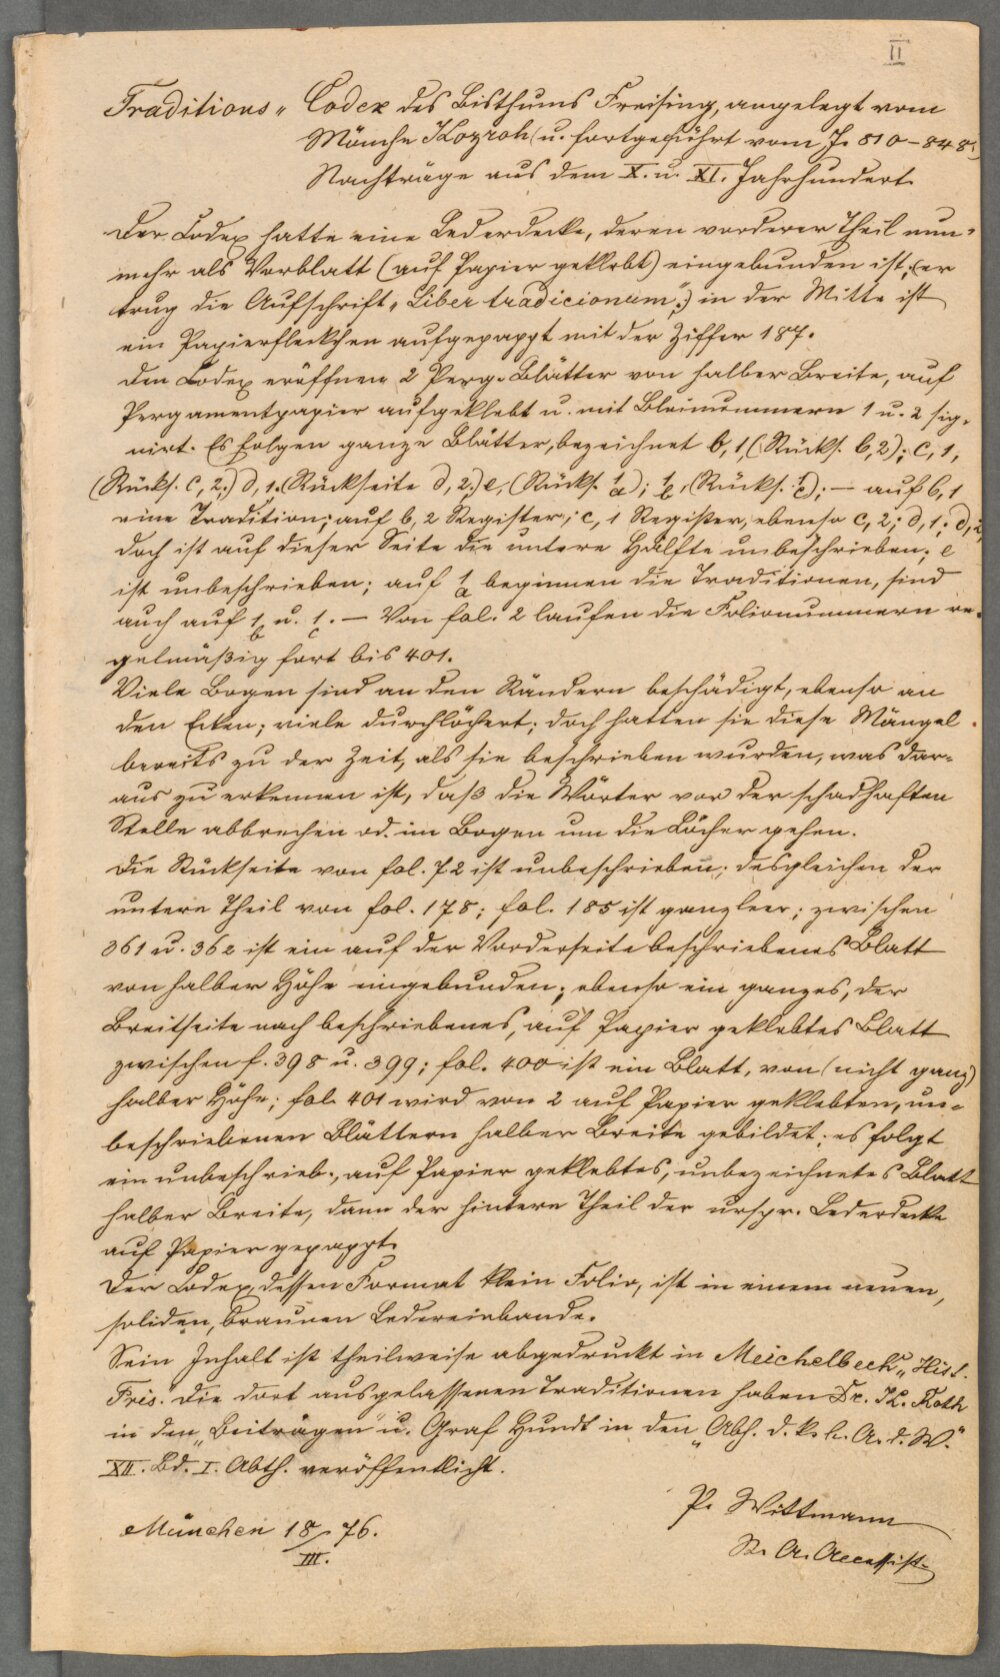 II
Traditions-Codex des Bisthums Freising, angelegt vom
Mönche Kozroh (u. fortgeführt vom J. 810-848.)
Nachträge aus dem X. u. XI. Jahrhundert.
Der Codex hatte eine Lederdecke, deren vorderer Theil nun-
mehr als Vorblatt (auf Papier geklebt) eingebunden ist; (er
trug die Aufschrift „Liber tradicionum";) in der Mitte ist
ein Papierfleckchen aufgepappt mit der Ziffer 187.
Den Codex eröffnen 2 Perg.-Blätter von halber Breite, auf
Pergamentpapier aufgeklebt u. mit Bleinummern 1 u. 2 sig-
nirt. Es folgen ganze Blätter, bezeichnet b, 1, (Rücks. b, 2); c, 1,
(Rücks. c, 2;) d, 1. (Rückseite d, 2;) e, (Rücks. 1/a); 1/b, (Rücks. 1/c); — auf b, 1
eine Tradition; auf b, 2 Register; c, 1 Register, ebenso c, 2; d, 1; d, 2,
doch ist auf dieser Seite die untere Hälfte unbeschrieben; e
ist unbeschrieben; auf 1/a beginnen die Traditionen, sind
auch auf 1/b u. 1/c. — Von fol. 2 laufen die Folionummern re-
gelmäßig fort bis 401.
Viele Bogen sind an den Rändern beschädigt, ebenso an
den Ecken; viele durchlöchert; doch hatten sie diese Mängel
bereits zu der Zeit, als sie beschrieben wurden, was dar-
aus zu erkennen ist, daß die Wörter vor der schadhaften
Stelle abbrechen od. im Bogen um die Löcher gehen.
Die Rückseite von fol. 72 ist unbeschrieben; desgleichen der
untere Theil von fol. 178; fol. 185 ist ganz leer; zwischen
361 u. 362 ist ein auf der Vorderseite beschriebenes Blatt
von halber Höhe eingebunden; ebenso ein ganzes, der
Breitseite nach beschriebenes, auf Papier geklebtes Blatt
zwischen f. 398 u. 399; fol. 400 ist ein Blatt, von (nicht ganz)
halber Höhe; fol. 401 wird von 2 auf Papier geklebten, un-
beschriebenen Blättern halber Breite gebildet; es folgt
ein unbeschrieb., auf Papier geklebtes, unbezeichnetes Blatt
halber Breite, dann der hintere Theil der urspr. Lederdecke
auf Papier gepappt.
Der Codex, dessen Format klein Folio, ist in einem neuen,
soliden, braunen Ledereinbande.
Sein Inhalt ist theilweise abgedruckt in Meichelbeck's „Hist.
Fris." Die dort ausgelassenen Traditionen haben Dr. K. Roth
in den „Beiträgen" u. Graf Hundt in den „Abh. d. k. b. A. d. W."
XII. Bd. I. Abth. veröffentlicht.
P. Wittmann
R. A. Accessist.
München 18/III. 76.